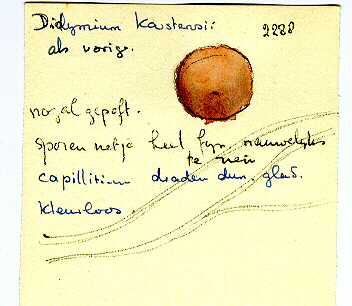 Didymium Karstensii 2228
als vorige.
nogal gepoft.
sporen netje heel fijn nauwelijks
te zien
capillitium draden dun, glad.
kleurloos